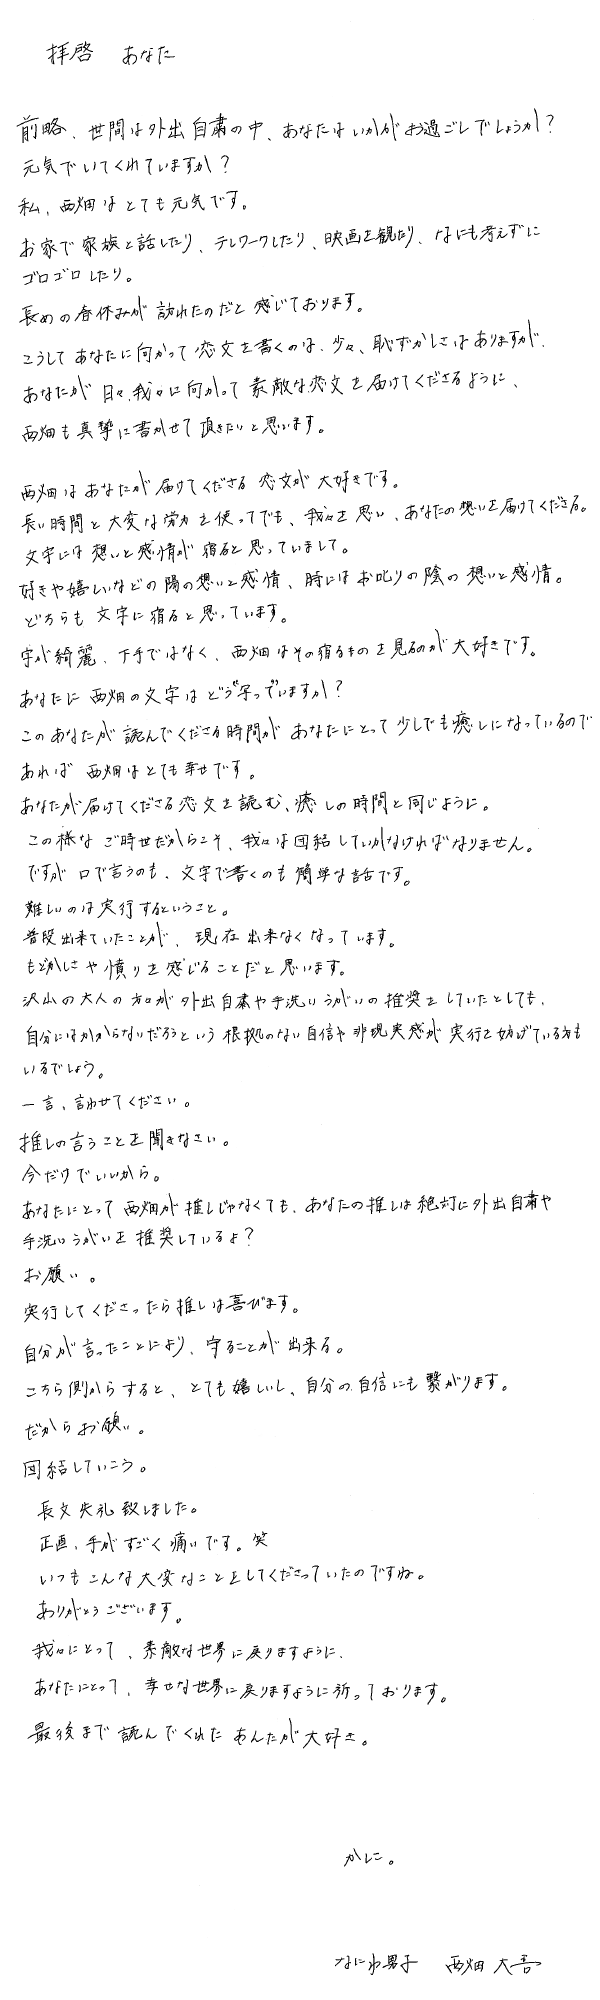 拝啓　あなた
前略、世間は外出自粛の中、あなたはいかがお過ごしでしょうか？
元気でいてくれていますか？
私、西畑はとても元気です。
お家で家族と話したり、テレワークしたり、映画を観たり、なにも考えずに
ゴロゴロしたり。
長めの春休みが訪れたのだと感じております。
こうしてあなたに向かって恋文を書くのは、少々、恥ずかしさはありますが、
あなたが日々、我々に向かって素敵な恋文を届けてくださるように、
西畑も真摯に書かせて頂きたいと思います。
西畑はあなたが届けてくださる恋文が大好きです。
長い時間と大変な労力を使ってでも、我々を思い、あなたの想いを届けてくださる。
文字には想いと感情が宿ると思っていまして。
好きや嬉しいなどの陽の想いと感情、時にはお叱りの陰の想いと感情。
どちらも文字に宿ると思っています。
字が綺麗、下手ではなく、西畑はその宿るものを見るのが大好きです。
あなたに西畑の文字はどう"写っ"ていますか？
このあなたが読んでくださる時間があなたにとって少しでも癒しになっているので
あれば西畑はとても幸せです。
あなたが届けてくださる恋文を読む、癒しの時間と同じように。
この様なご時世だからこそ、我々は団結していかなければなりません。
ですが口で言うのも、文字で書くのも簡単な話です。
難しいのは実行するということ。
普段出来ていたことが、現在出来なくなっています。
もどかしさや憤りを感じることだと思います。
沢山の大人の方々が外出自粛や手洗いうがいの推奨をしていたとしても、
自分にはかからないだろうという根拠のない自信や非現実感が実行を妨げている方も
いるでしょう。
一言、言わせてください。
推しの言うことを聞きなさい。
今だけでいいから。
あなたにとって西畑が推しじゃなくても、あなたの推しは絶対に外出自粛や
手洗いうがいを推奨しているよ？
お願い。
実行してくださったら推しは喜びます。
自分が言ったことにより、守ることが出来る。
こちら側からすると、とても嬉しいし、自分の自信にも繋がります。
だからお願い。
団結していこう。
長文失礼致しました。
正直、手がすごく痛いです。笑
いつもこんな大変なことをしてくださっていたのですね。
ありがとうございます。
我々にとって、素敵な世界に戻りますように、
あなたにとって、幸せな世界に戻りますように祈っております。
最後まで読んでくれたあんたが大好き。
かしこ。
なにわ男子　西畑 大吾